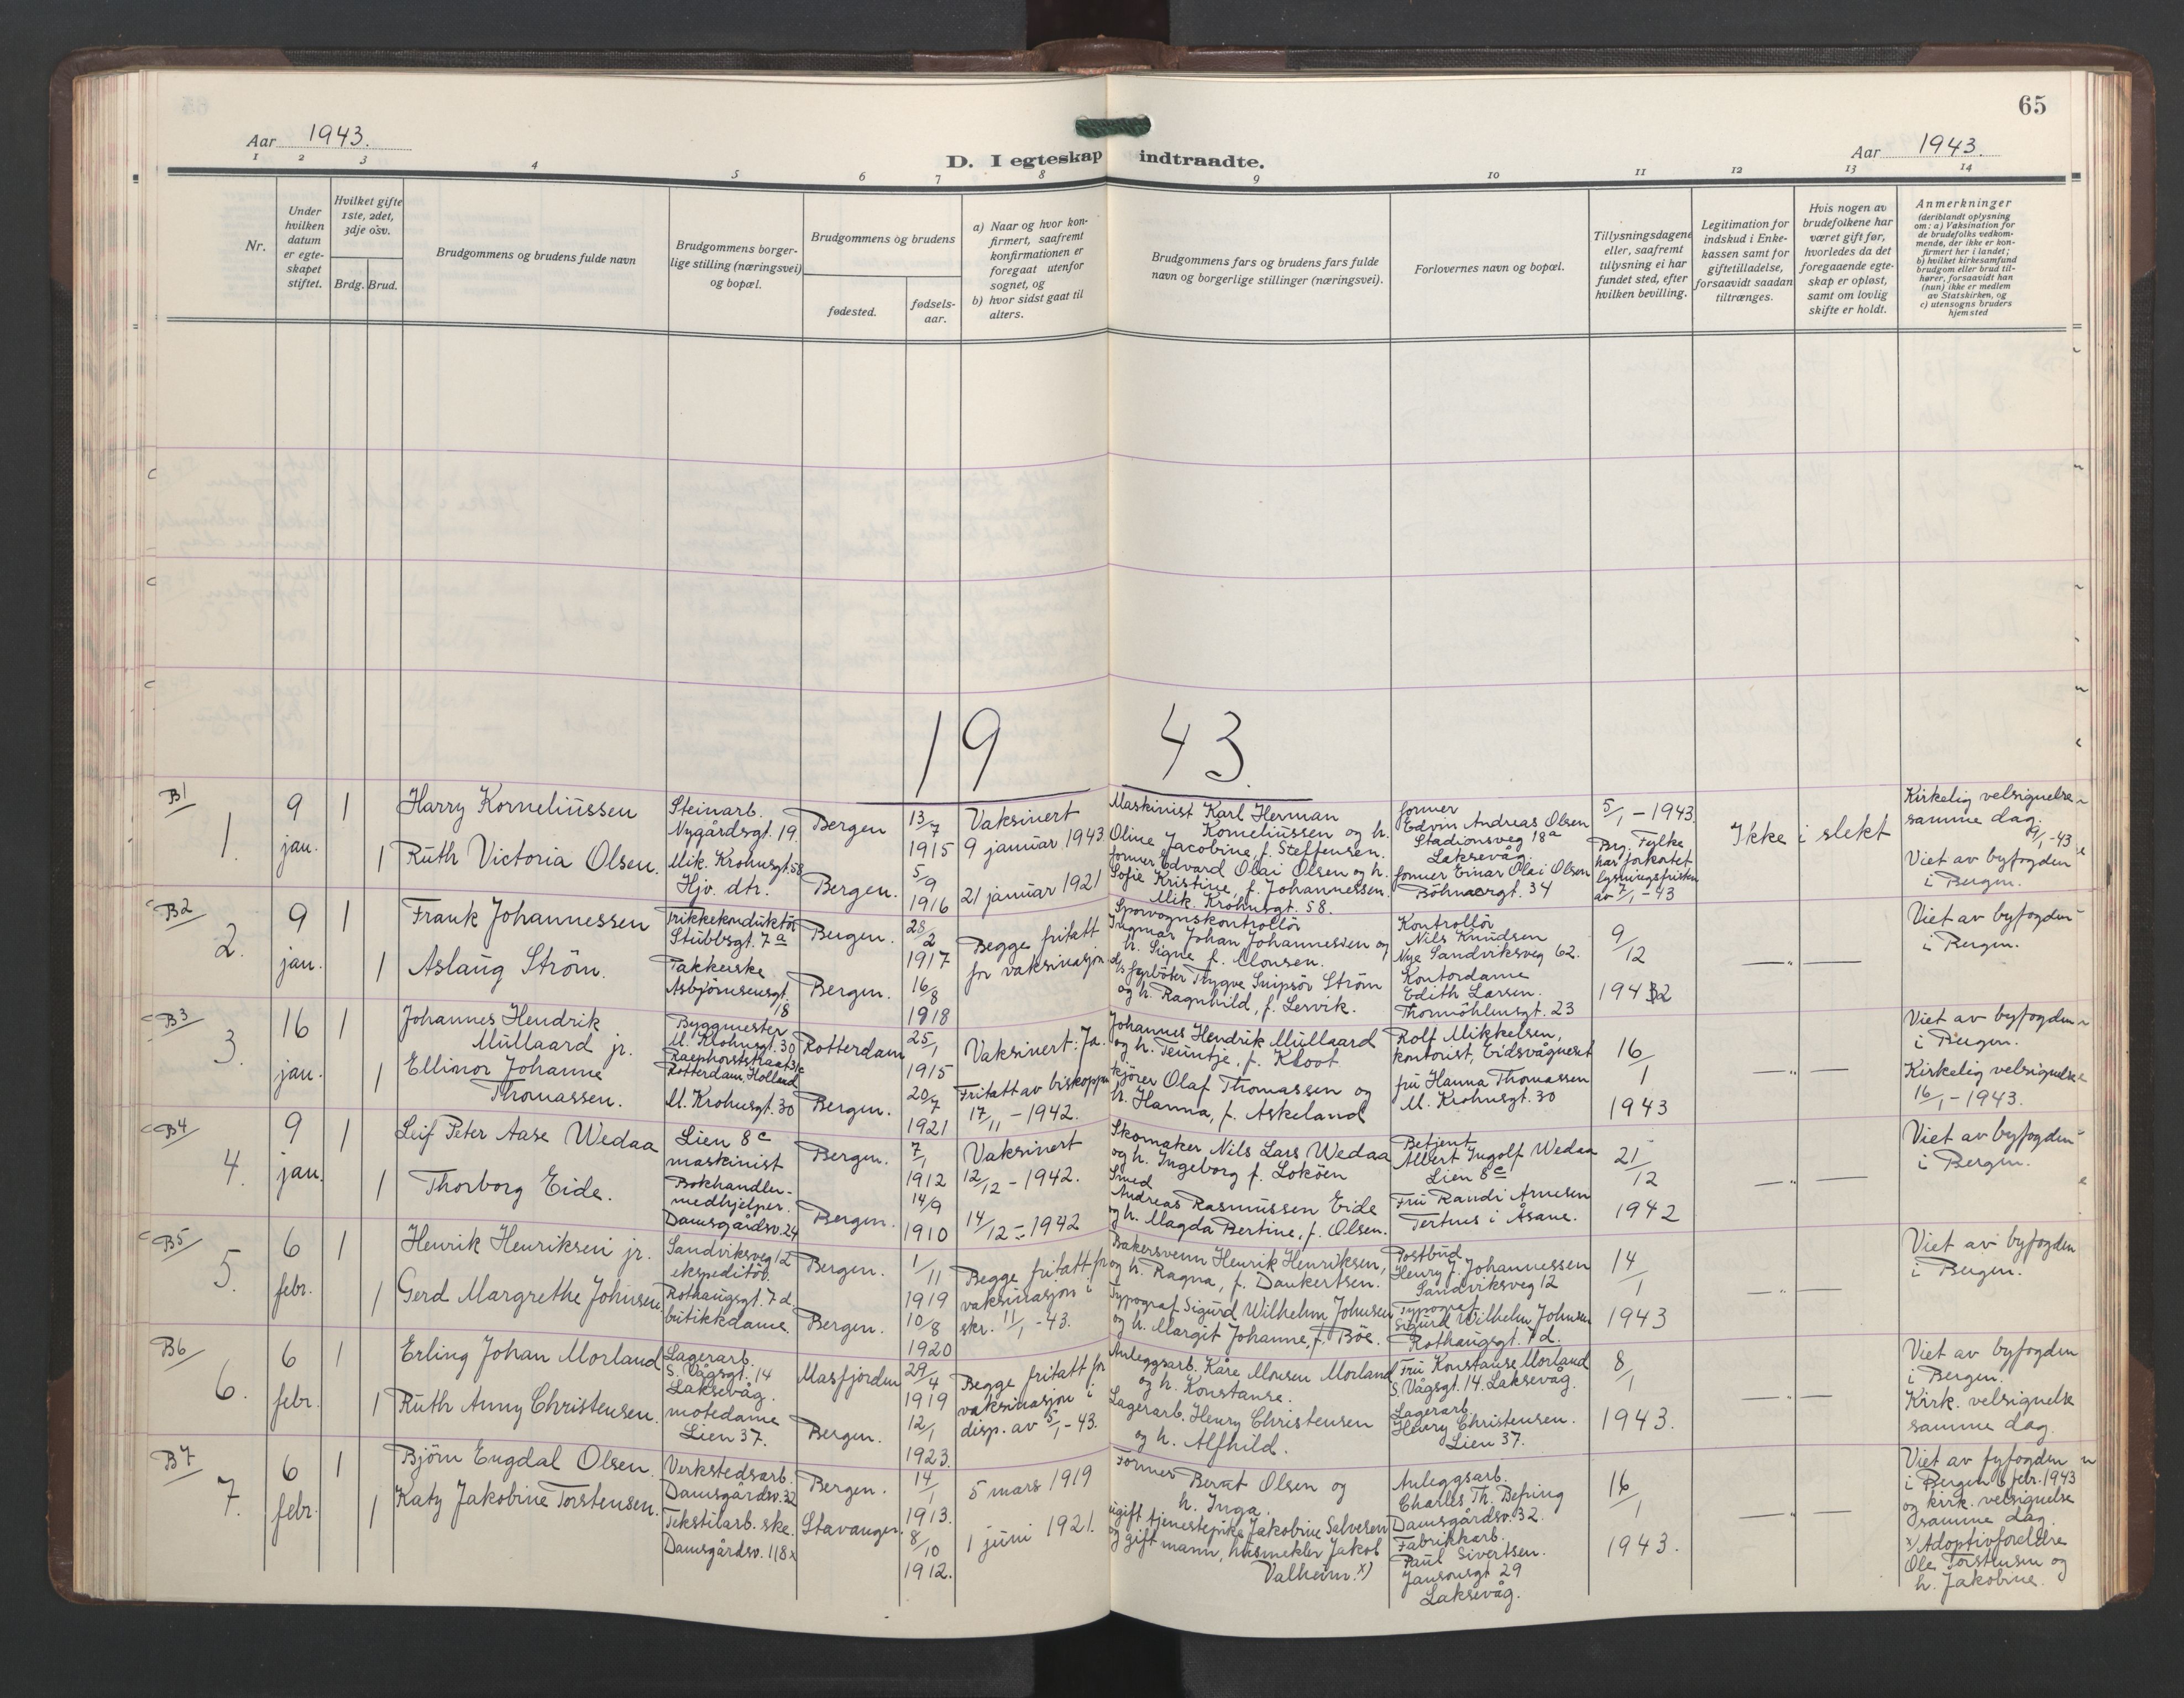 65
Aar 1943.
Aar 1943.
D. I egteskap indtraadte.
1 2 3 4 5 6 7 8 9 10 11 12 13 14
Nr.
Under hvilken datum er egteskapet stiftet.
Hvilket gifte 1ste, 2det, 3dje osv.
Brdg. Brud.
Brudgommens og brudens fulde navn
Brudgommens borgerlige stilling (næringsvei) og bopæl.
Brudgommens og brudens
fødested.
fødselsaar.
a) Naar og hvor konfirmert, saafremt konfirmationen er foregaat utenfor sognet, og
b) hvor sidst gaat til alters.
Brudgommens fars og brudens fars fulde navn og borgerlige stillinger (næringsvei).
Forlovernes navn og bopæl.
Tillysningsdagene eller, saafremt tillysning ei har fundet sted, efter hvilken bevilling.
Legitimation for indskud i Enkekassen samt for giftetilladelse, forsaavidt saadan tiltrænges.
Hvis nogen av brudefolkene har været gift før, hvorledes da det foregaaende egteskap er opløst, samt om lovlig skifte er holdt.
Anmerkninger
(deriblandt oplysning om: a) Vaksination for de brudefolks vedkommende, der ikke er konfirmert her i landet; b) hvilket kirkesamfund brudgom eller brud tilhører, forsaavidt han (hun) ikke er medlem av Statskirken, og c) utensogns bruders hjemsted
19 43
B1/
1.
9 jan.
1
Harry Korneliussen
Steinarb.
Nygårdsgt. 19.
Bergen
13/7 1915
Vaksinert
9 januar 1943
Maskinist Karl Herman
Korneliussen og h.
Oline Jacobine, f. Steffensen.
former
Edvin Andreas Olsen
Stadionsveg 18a
Laksevåg.
5/1 – 1943
Ikke i slekt
Kirkelig velsignelse
samme dag.
9/1 -43
1
Ruth Victoria Olsen.
Mik. Krohnsgt. 58
Hjv. dtr.
Bergen.
5/9 1916
21 januar 1921
former Edvard Olai Olsen og h.
Sofie Kristine, f. Johannessen.
Mik. Krohnsgt. 58.
former Einar Olai Olsen
Böhmergt. 34
Brg. Fylke
har forkortet
lysningsfristen
av 7/1 -43
Viet av byfogden
i Bergen.
B2/
2.
9 jan.
1
Frank Johannessen
Trikkekonduktör
Stubbsgt. 7a
Bergen.
28/2 1917
Begge fritatt
for vaksinasjon
Sporvognskontrollör
Ingmar Johan Johannessen og
h. Signe f. Monsen.
Kontrollör
Nils Knudsen
Nye Sandviksveg 62.
9/12
1942
— " —
Viet av byfogden
i Bergen.
1
Aslaug Ström.
Pakkerske
Asbjörnsensgt.
18
Bergen.
16/8 1918
d/s fyrböter Trygve Snipsör Ström
og h. Ragnhild, f. Lervik.
Kontordame
Edith Larsen.
Thormöhlensgt. 23
B3/
3.
16 jan.
1
Johannes Hendrik
Mullaard jr.
Byggmester
M. Krohnsgt. 30
Raephorststraat 31c
Rotterdam, Holland
Rotterdam
25/1 1915
Vaksinert: Ja.
Johannes Hendrik Mullaard
og h. Teuntje, f. Kloot
Rolf Mikkelsen,
kontorist, Eidsvågneset
16/1
1943
— " —
Viet av byfogden
i Bergen.
1
Ellinor Johanne
Thomassen.
M. Krohnsgt. 30
Bergen.
20/7 1921
Fritatt av biskoppen
17/11 – 1942.
kjörer Olaf Thomassen og
h. Hanna, f. Askeland
fru Hanna Thomassen
M. Krohnsgt. 30
Kirkelig velsignelse
16/1 – 1943.
B4/
4.
9 jan.
1
Leif Peter Aase Wedaa
Lien 8c
maskinist
Bergen.
7/1 1912
Vaksinert
12/12 – 1942.
Skomaker Nils Lars Wedaa
og h. Ingeborg f. Loköen
Betjent
Albert Ingolf Wedaa
Lien 8c
21/12
1942
— " —
Viet av byfogden
i Bergen.
1
Thorborg Eide.
Bokhandler-
medhjelper.
Damsgårdsv. 24
Bergen.
14/9 1910
14/12 – 1942
Smed
Andreas Rasmussen Eide
og h. Magda Bertine, f. Olsen.
Fru Randi Arnesen
Tertnes i Åsane.
B5/
5.
6 febr.
1
Henrik Henriksen jr.
Sandviksveg 12
ekspeditör.
Bergen.
1/11 1919
Begge fritatt for
vaksinasjon i
skr. 11/1 -43.
Bakersvenn Henrik Henriksen,
og h. Ragna, f. Dankertsen.
Postbud
Henry J. Johannessen
Sandviksveg 12
14/1
1943
— " —
Viet av byfogden
i Bergen.
1
Gerd Margrethe Johnsen.
Rothaugsgt. 7d
butikkdame.
Bergen.
10/8 1920
Typograf Sigurd Wilhelm Johnsen
og h. Margit Johanne, f. Böe.
Typograf
Sigurd Wilhelm Johnsen
Rothaugsgt. 7d.
B6/
6.
6 febr.
1
Erling Johan Morland
Lagerarb.
S. Vågsgt. 14
Laksevåg.
Masfjorden
29/4 1919
Begge fritatt for
vaksinasjon i
disp. av 5/1 -43.
Anleggsarb. Kåre Monsen Morland
og h. Konstanse.
Fru Konstanse Morland
S. Vågsgt. 14. Laksevåg.
8/1
1943.
— " —
Viet av byfogden
i Bergen.
1
Ruth Anny Christensen.
motedame
Lien 37.
Bergen.
12/1 1923.
Lagerarb. Henry Christensen
og h. Alfhild.
Lagerarb.
Henry Christensen.
Lien 37.
Kirk. velsignelse
samme dag.
B7/
7.
6 febr.
1
Björn Engdal Olsen.
Verkstedsarb.
Damsgårdsv. 32
Bergen.
14/1 1913.
5 mars 1919
Former Bernt Olsen og
h. Inga.
Anleggsarb.
Charles Th. Befring
Damsgårdsv. 32.
16/1
1943.
— " —
Viet av byfogden
i Bergen 6 febr. 1943
og kirk. velsignelse
samme dag.
1
Katy Jakobine Torstensen.
Tekstilarb.ske.
Damsgårdsv. 118x
Stavanger.
8/10 1912.
1 juni 1921.
ugift tjenestepike Jakobine Salvesen
og gift mann, husmekler Jakob
Valheim. x)
Fabrikkarb.
Paul Sivertsen.
Jansonsgt 29
Laksevåg.
x) Adoptivforeldre
Ole Torstensen og
h. Jakobine.